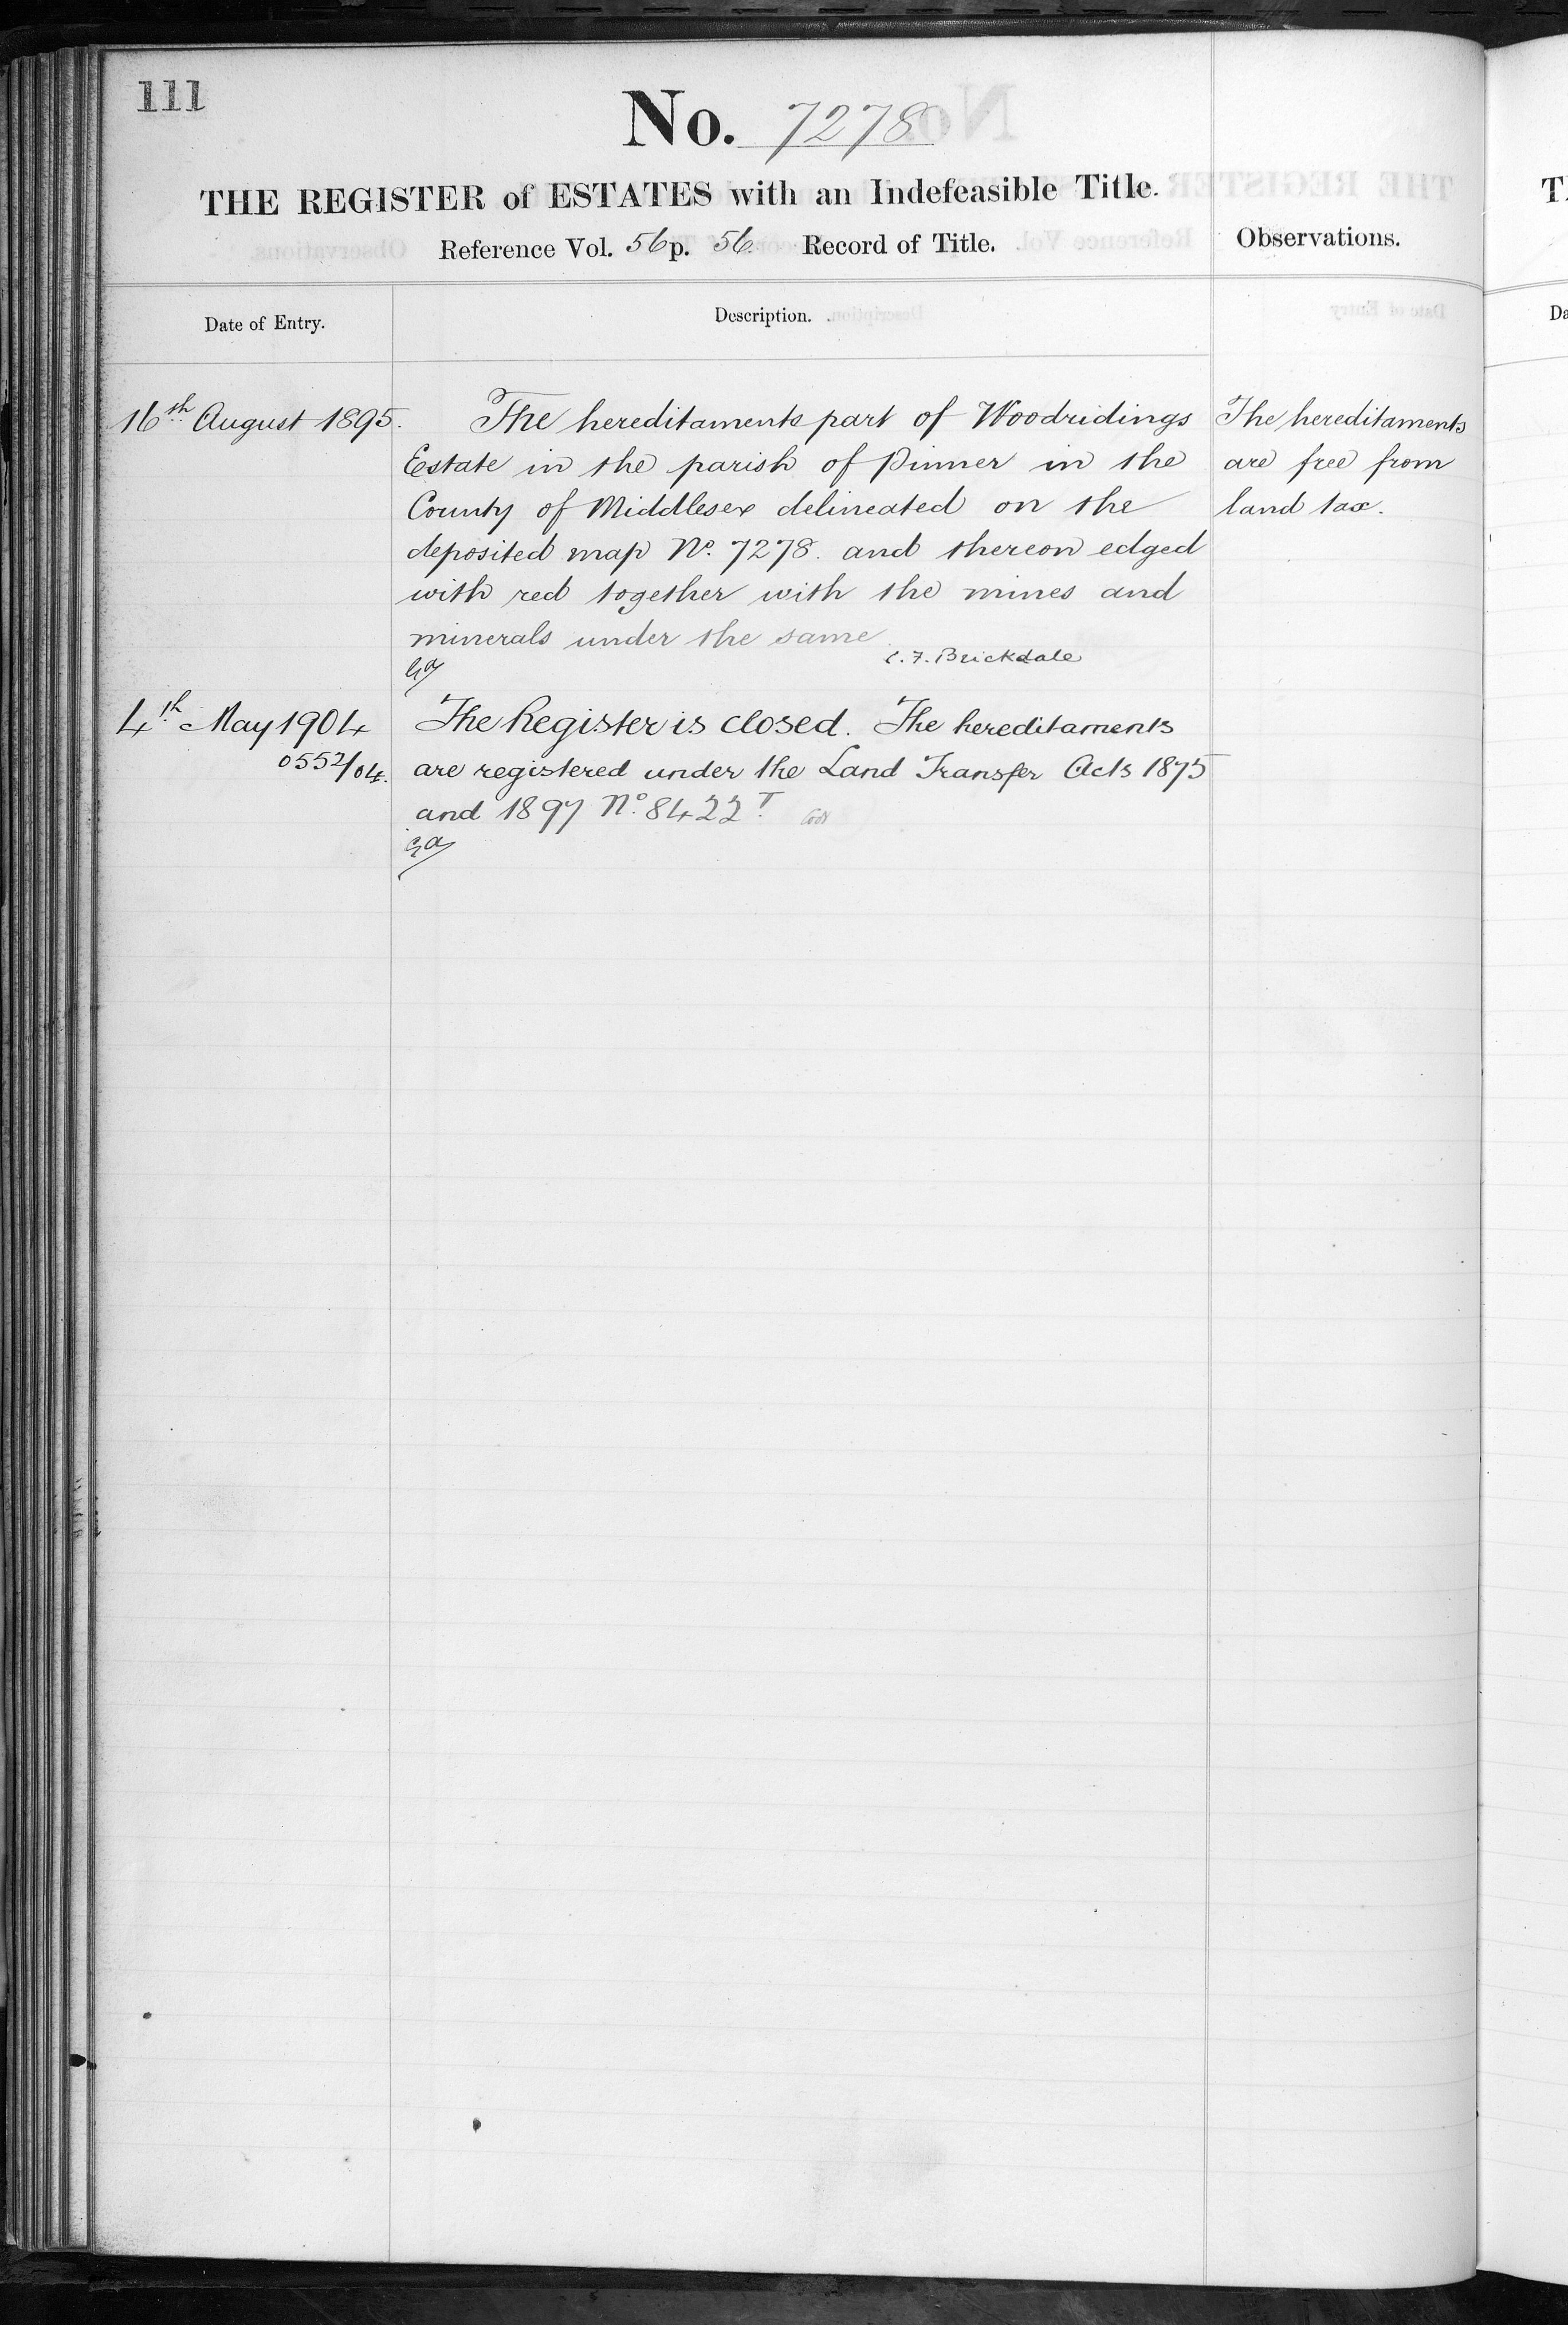 111
No. 7278
THE REGISTER of ESTATES with an Indefeasible Title.
Reference Vol. 56 p. 56 Record of Title.
Observations.
Date of Entry.
Description.
16th August 1895.
The hereditaments part of Woodridings
Estate in the parish of Pinner in the
County of Middlesex delineated on the
deposited map No. 7278. and thereon edged
with red together with the mines and
minerals under the same
C. F. Brickdale
The hereditaments
are free from
land tax.
4th May 1904
0552/04.
The Register is closed. The hereditaments
are registered under the Land Transfer Acts 1875
and 1897 No. 8422T.